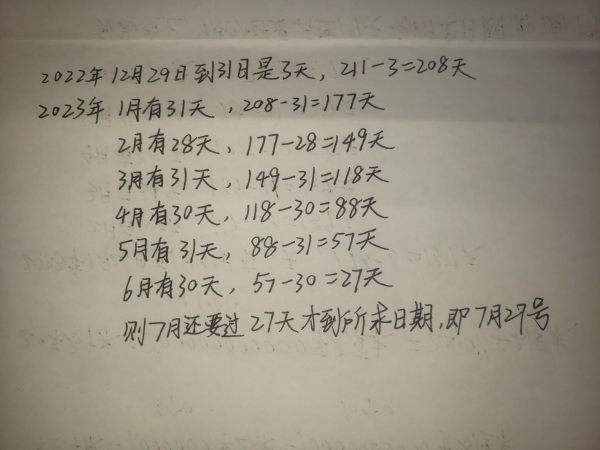 2022年12月29日到31日是3天，211-3=208天
2023年1月有31天，208-31=177天
2月有28天，177-28=149天
3月有31天，149-31=118天
4月有30天，118-30=88天
5月有31天，88-31=57天
6月有30天，57-30=27天
则7月还要过27天才到所求日期，即7月27号